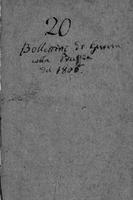 20
Bollettini di Guerra
colla Prussia
del 1806.